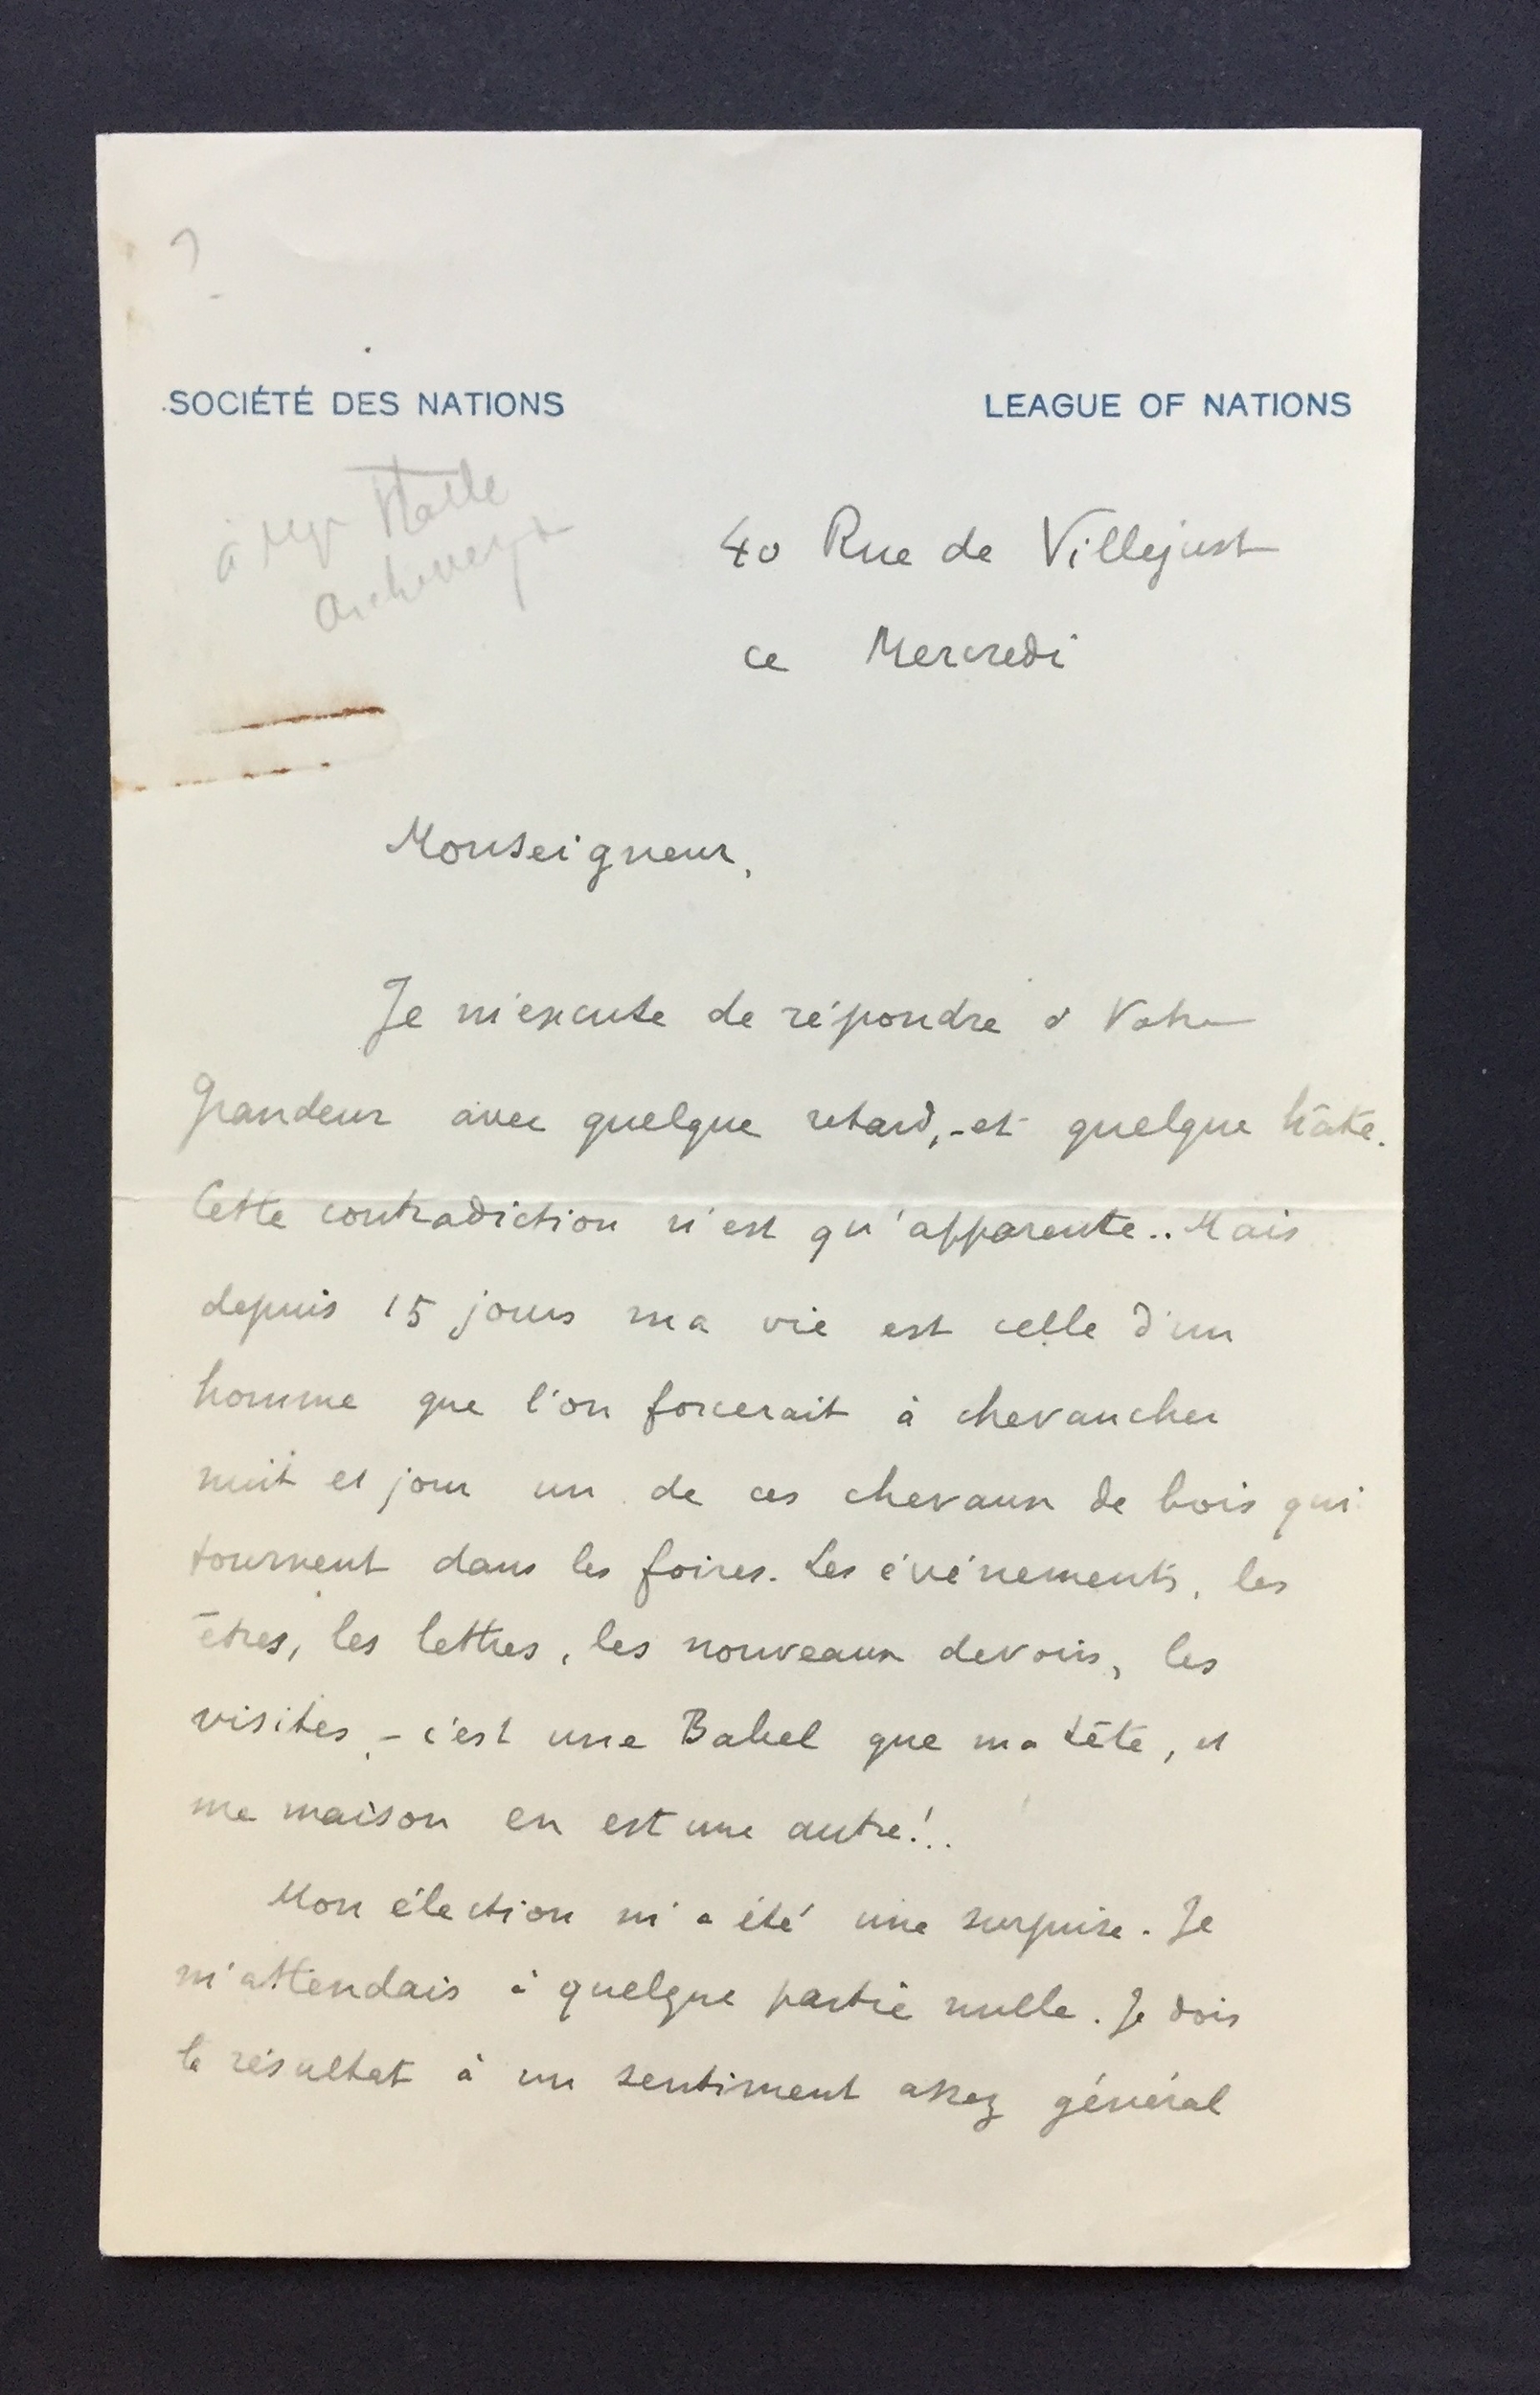 SOCIÉTÉ DES NATIONS LEAGUE OF NATIONS
à Mgr
40 Rue de Villejust
ce Mercredi
Monseigneur,
Je m'excuse de répondre à Votre
Grandeur avec quelque retard, - et quelque hâte.
Cette contradiction n'est qu'apparente.. Mais
depuis 15 jours ma vie est celle d'un
homme que l'on forcerait à chevaucher
nuit et jour un de ces chevaux de bois qui
tournent dans les foires. Les événements, les
êtres, les lettres, les nouveaux devoirs, les
visites, - c'est une Babel que ma tête, et
ma maison en est une autre!..
Mon élection m'a été une surprise. Je
m'attendais à quelque partie nulle. Je dois
le résultat à un sentiment assez général